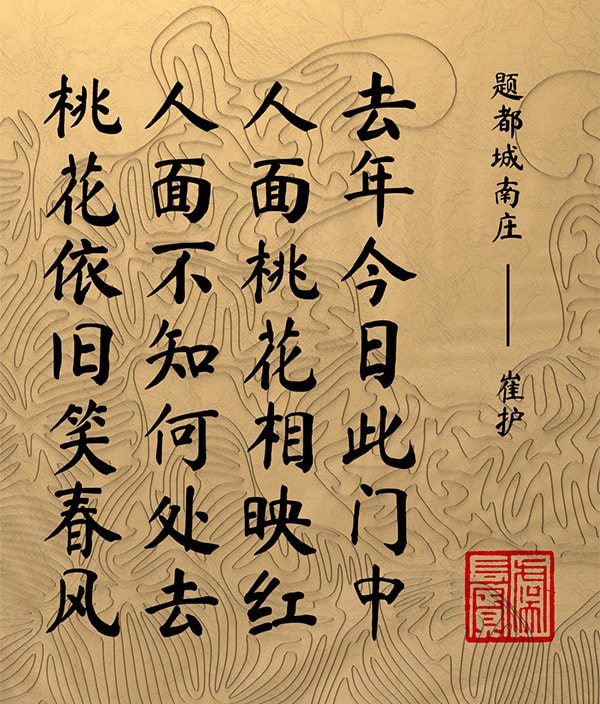 题都城南庄——崔护
去年今日此门中
人面桃花相映红
人面不知何处去
桃花依旧笑春风